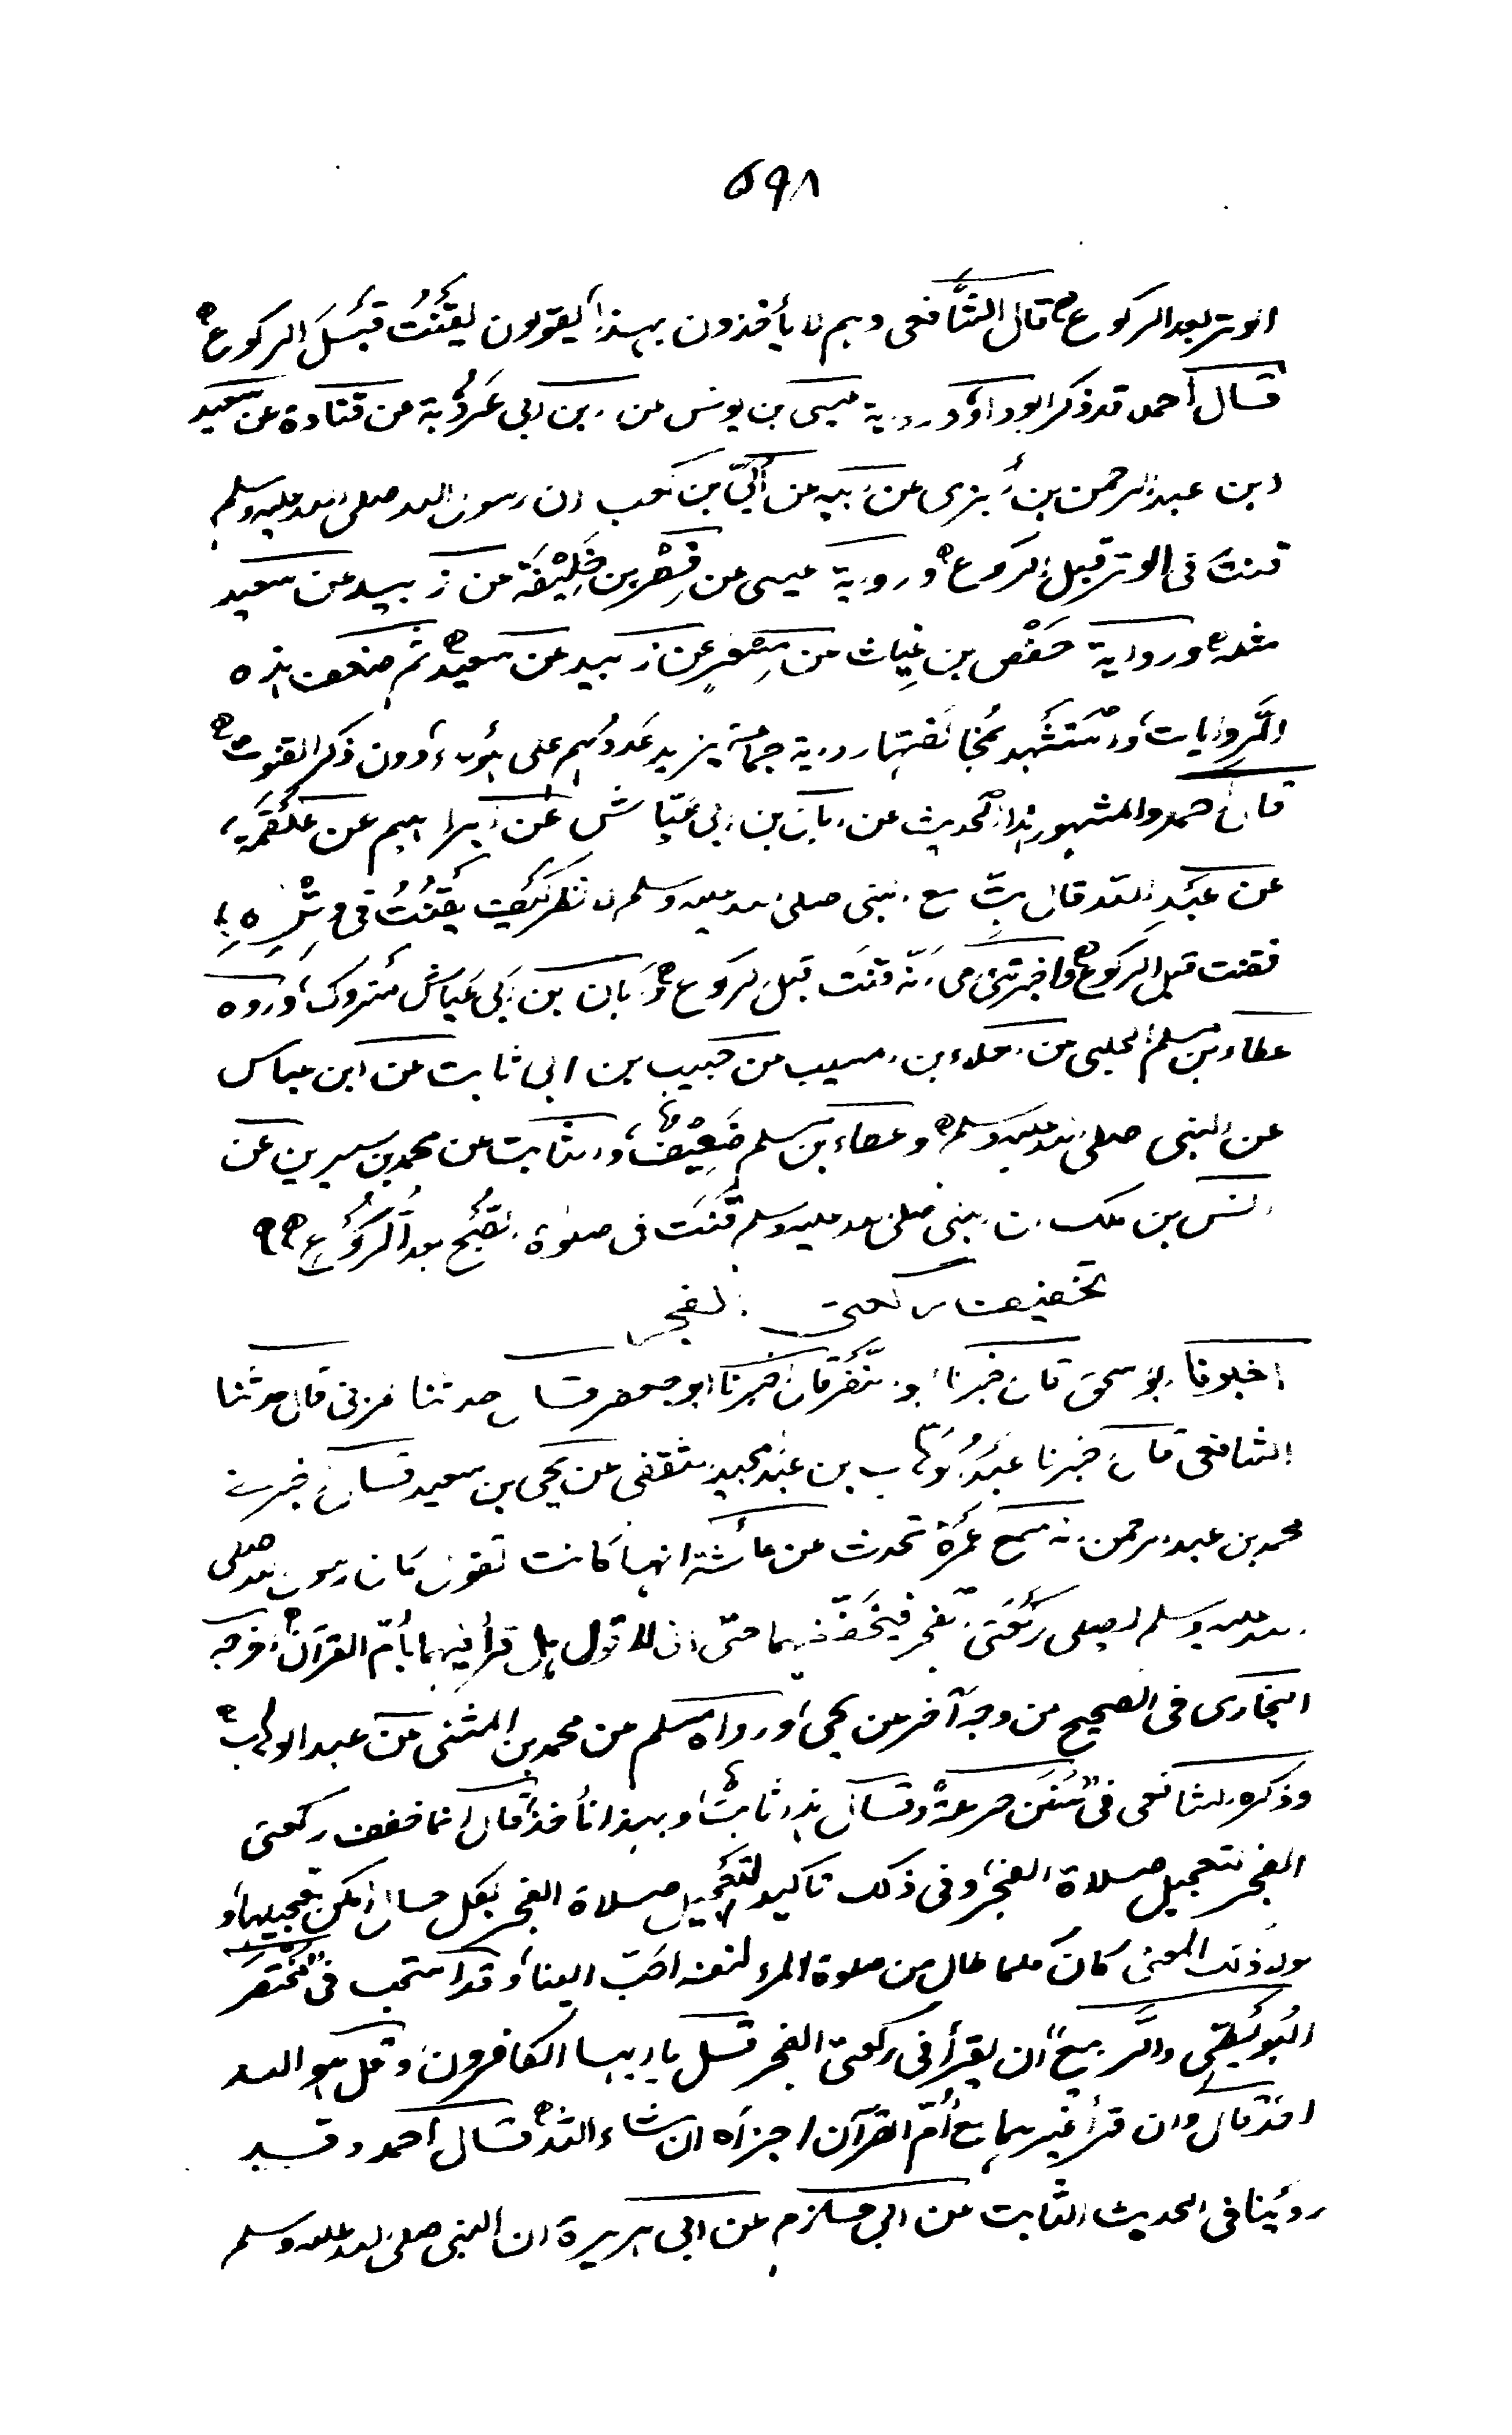 ۵۹۸
الوتر بعد الركوع قال الشافعى وهم لا يأخذون بهذا يقولون يقنت قبل الركوع
قال أحمد قد ذكر ابوداؤد رواية عيسى بن يونس عن ابن ابى عروبة عن قتادة عن سعيد
ابن عبد الرحمن بن أبزى عن ابيه عن أبيّ بن كعب ان رسول الله صلى الله عليه وسلم
قنت فى الوتر قبل الركوع ورواية عيسى عن فطر بن خليفة عن زبيد عن سعيد
مثله ورواية حفص بن غياث عن مسعر عن زبيد عن سعيد ثم ضعف هذه
الروايات واستشهد بمخالفتها رواية جماعة يزيد عددهم على هؤلاء دون ذكر القنوت
قال احمد والمشهور هذا الحديث عن ابان بن ابى عياش عن ابراهيم عن علقمة
عن عبد الله قال بتّ مع النبى صلى الله عليه وسلم لانظر كيف يقنت فى وتره
فقنت قبل الركوع واخبرتنى امى انه قنت قبل الركوع وأبان بن ابى عياش متروك ورواه
عطاء بن مسلم الحلبى عن العلاء بن المسيب عن حبيب بن ابى ثابت عن ابن عباس
عن النبى صلى الله عليه وسلم وعطاء بن مسلم ضعيف والثابت عن محمد بن سيرين عن
انس بن ملك ان النبى صلى الله عليه وسلم قنت فى صلوٰة الصبح بعد الركوع
تخفيف ركعتى الفجر
اخبرنا ابو اسحق قال اخبرنا ابو النضر قال اخبرنا ابو جعفر قال حدثنا المزنى قال حدثنا
الشافعى قال اخبرنا عبد الوهاب بن عبد المجيد الثقفى عن يحيى بن سعيد قال اخبرنى
محمد بن عبد الرحمن انه سمع عمرة تحدث عن عائشة انها كانت تقول كان رسول الله صلى
الله عليه وسلم ليصلى ركعتى الفجر فيخففهما حتى انى لاقول هل قرأ فيهما بأمّ القرآن اخرجه
البخارى فى الصحيح من وجه آخر عن يحيى ورواه مسلم عن محمد بن المثنى عن عبد الوهاب
وذكره الشافعى فى سنن حرملة وقال هذا ثابت وبهذا نأخذ قال انما خفف ركعتى
الفجر لتعجيل صلاة الفجر وفى ذلك تأكيد لتعجيل صلاة الفجر بكل حال امكن تعجيلها و
لولا ذلك المعنى كان كلما طال من صلوة المرء لنفسه احبّ الينا وقد استحب فى مختصر
البويطى والربيع ان يقرأ فى ركعتى الفجر قل يا ايها الكافرون وقل هو الله
احد قال وان قرأ غيرهما مع أمّ القرآن اجزأه ان شاء الله قال أحمد وقد
روينا فى الحديث الثابت عن ابى حازم عن ابى هريرة ان النبى صلى الله عليه وسلم